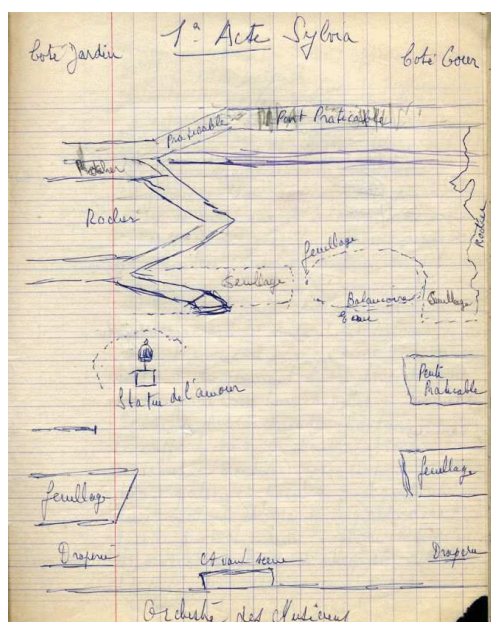 1ª Acte Sylvia
Coté Jardin
Coté Cour
Praticable
Pont Praticable
Rocher
Rocher
Rocher
feuillage
feuillage
Balancoire
feuillage
Statue de l'amour
Pente
Praticable
feuillage
feuillage
Draperie
avant scene
Draperie
Orchestre des Musiciens